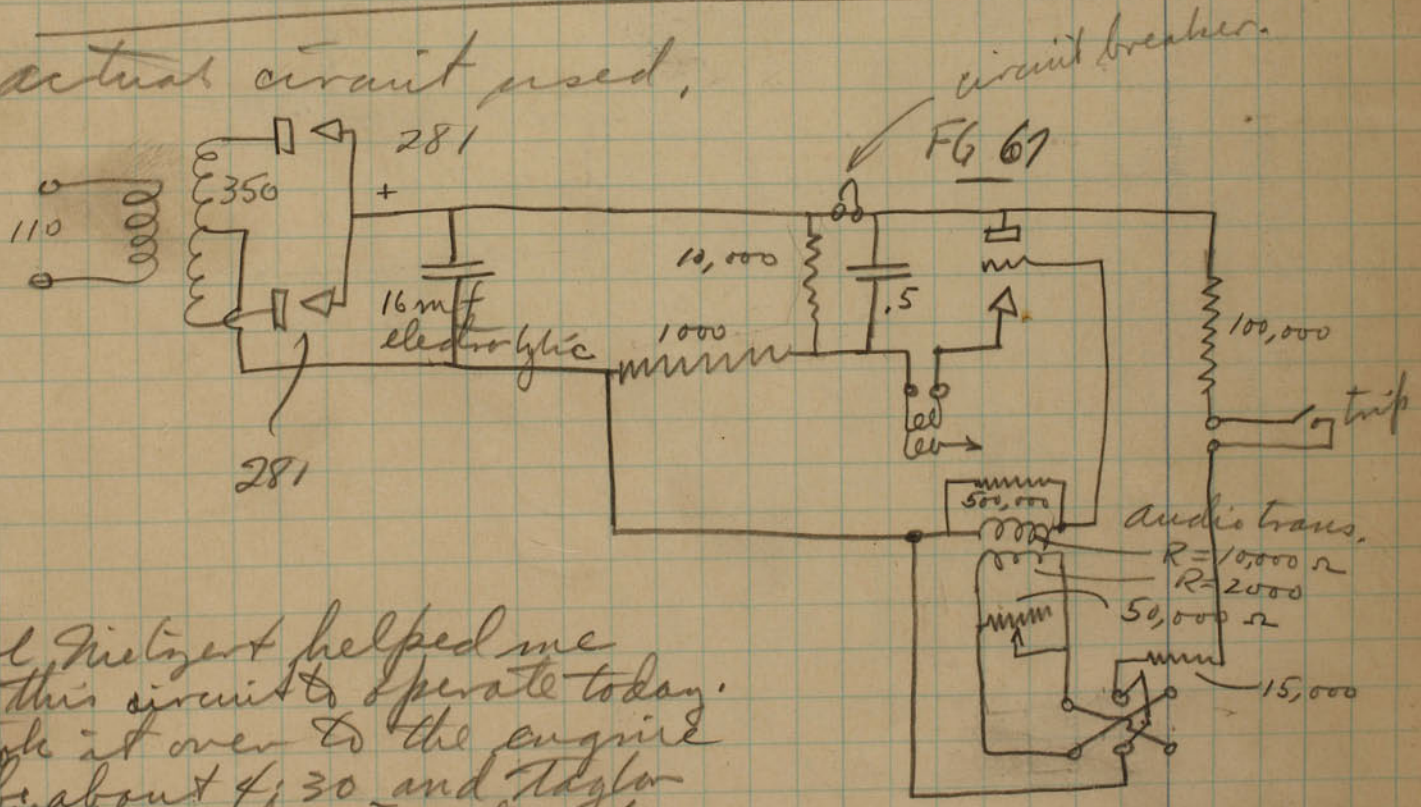 actual circuit used.
circuit breaker.
281
FG 67
350
+
110
10,000
16 mf
electrolytic
.5
1000
100,000
trip
281
500,000
audio trans.
R = 10,000 Ω
R = 2000
50,000 Ω
15,000
helped me
this circuit to operate today.
it over to the engine
about 4:30 and Taylor